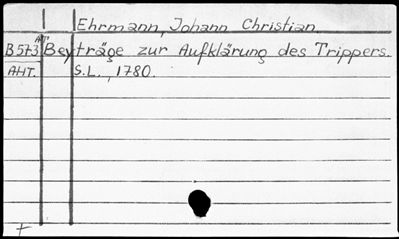 Ehrmann, Johann Christian.
B 573 Beyträge zur Aufklärung des Trippers.
AHT. S.L., 1780.